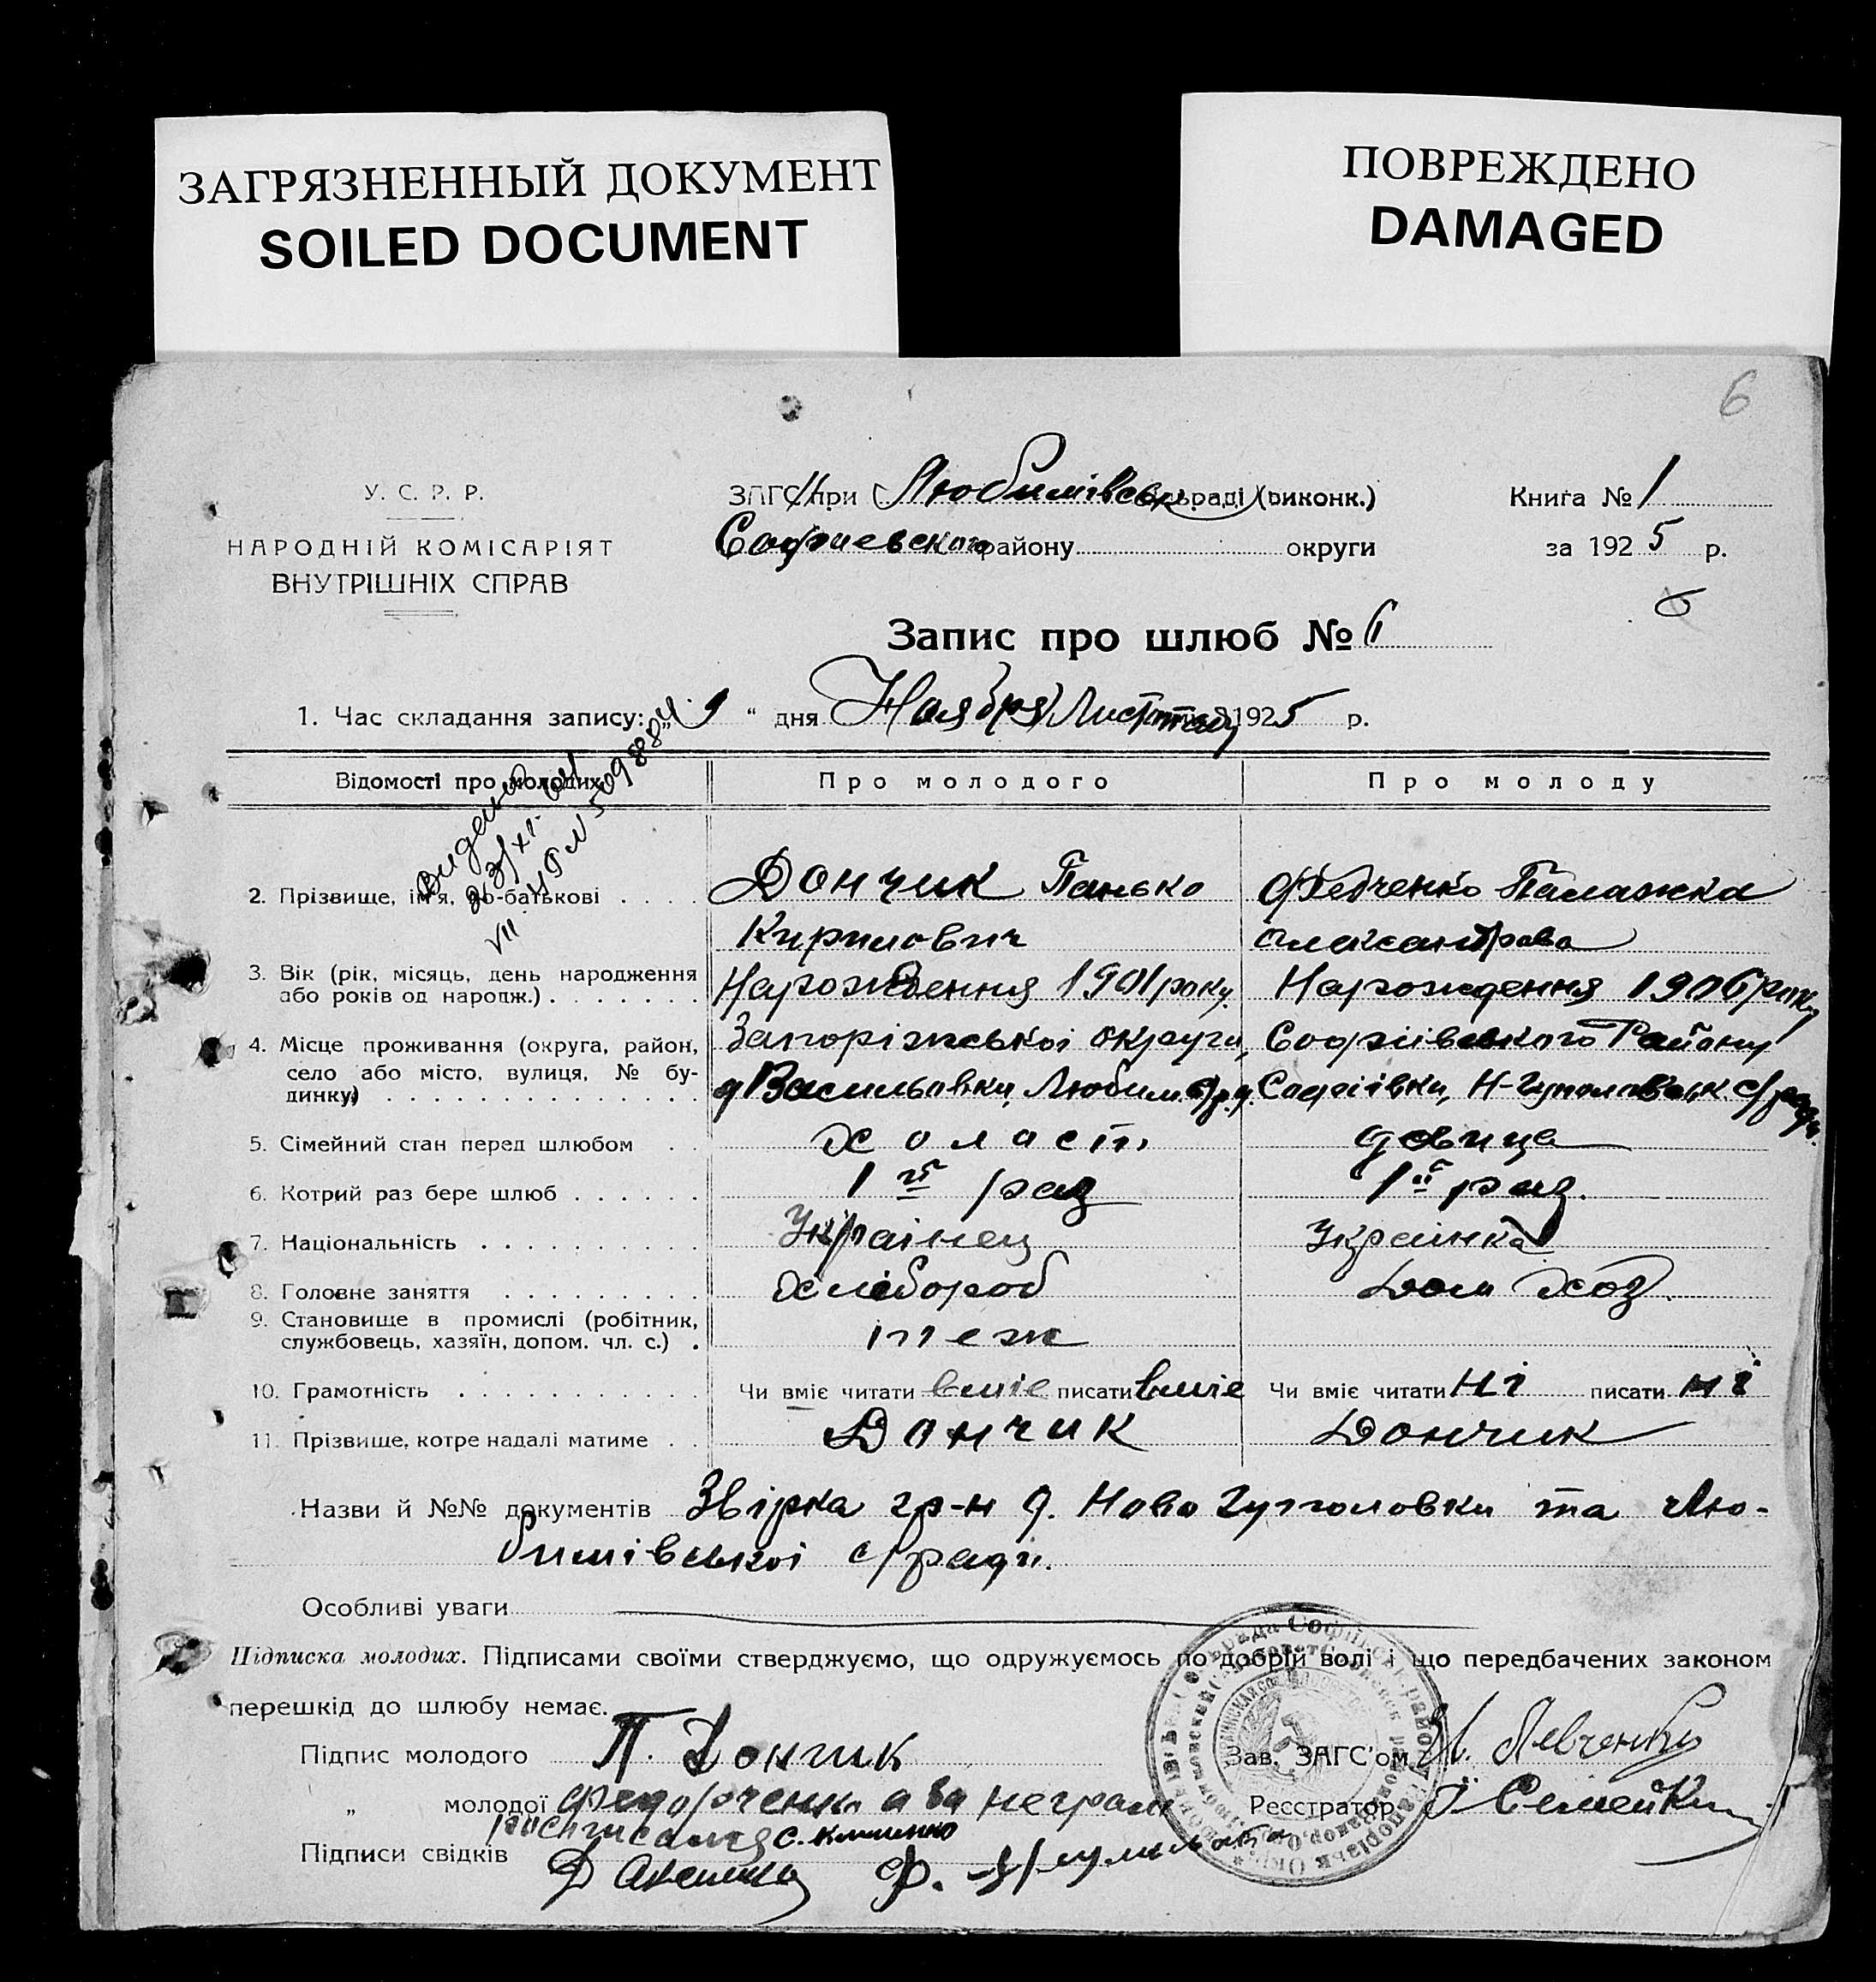 ЗАГРЯЗНЕННЫЙ ДОКУМЕНТ
SOILED DOCUMENT
ПОВРЕЖДЕНО
DAMAGED
6
У. С. Р. Р.
НАРОДНІЙ КОМІСАРІЯТ
ВНУТРІШНІХ СПРАВ
ЗАГС при (Любимівськ сільраді (виконк.)
Софиевского району округи
Книга № 1
за 1925 р.
6
Запис про шлюб № 6
1. Час складання запису: „ 9 “ дня Ноября) Листопаду 1925 р.
Відомості про молодих
Про молодого
Про молоду
2. Прізвище, ім'я, по-батькові
Дончик Панько
Кирилович
Палажка
Олександрова
3. Вік (рік, місяць, день народження
або років од народж.)
Нарождення 1901 року.
Нарождення 1906 року
4. Місце проживання (округа, район,
село або місто, вулиця, № бу-
динку)
Запоріжської округи,
д Васильовки, Любим. с/р.д.
Софіївского Району
Софіївки, Н-Гуполовськ. с/ради.
5. Сімейний стан перед шлюбом
холаст.
девица
6. Котрий раз бере шлюб
1й раз
1й раз.
7. Національність
Українец
Украінка
8. Головне заняття
Хлібороб
Дом Хоз.
9. Становище в промислі (робітник,
службовець, хазяїн, допом. чл. с.)
теж
10. Грамотність
Чи вміє читати вміє писати вміє
Чи вміє читати ні писати ні
11. Прізвище, котре надалі матиме
Дончик
Дончик
Назви й №№ документів Звірка гр-н д. Ново Гуполовки та Лю-
бимівської с/ради.
Особливі уваги
Підписка молодих. Підписами своїми стверджуємо, що одружуємось по добрій волі і що передбачених законом
перешкід до шлюбу немає.
Підпис молодого П. Дончик
Зав. ЗАГС'ом Левченко
„ молодої
Реєстратор Семейкин
Підписи свідків